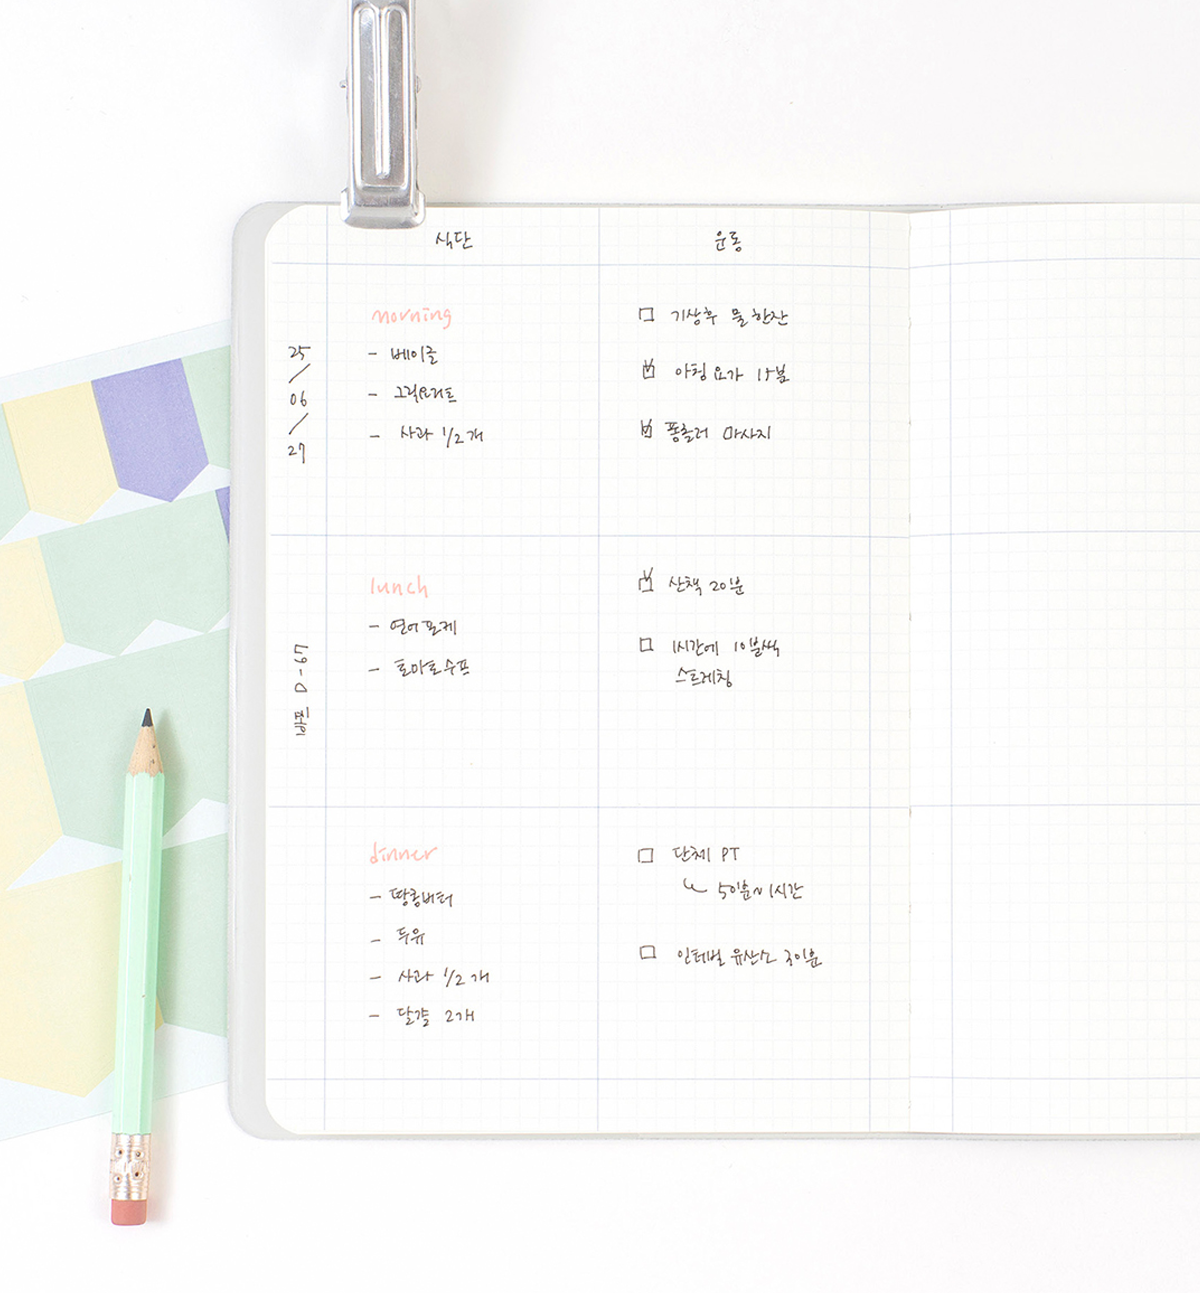 식단
운동
25
/
06
/
27
morning
- 베이글
- 그릭요거트
- 사과 1/2개
□ 기상후 물 한잔
☑ 아침 요가 15분
☑ 폼롤러 마사지
D-67
lunch
- 연어포케
- 토마토수프
☑ 산책 20분
□ 1시간에 10분씩
스트레칭
dinner
- 땅콩버터
- 두유
- 사과 1/2개
- 달걀 2개
□ 단체 PT
↳ 50분~1시간
□ 인터벌 유산소 30분